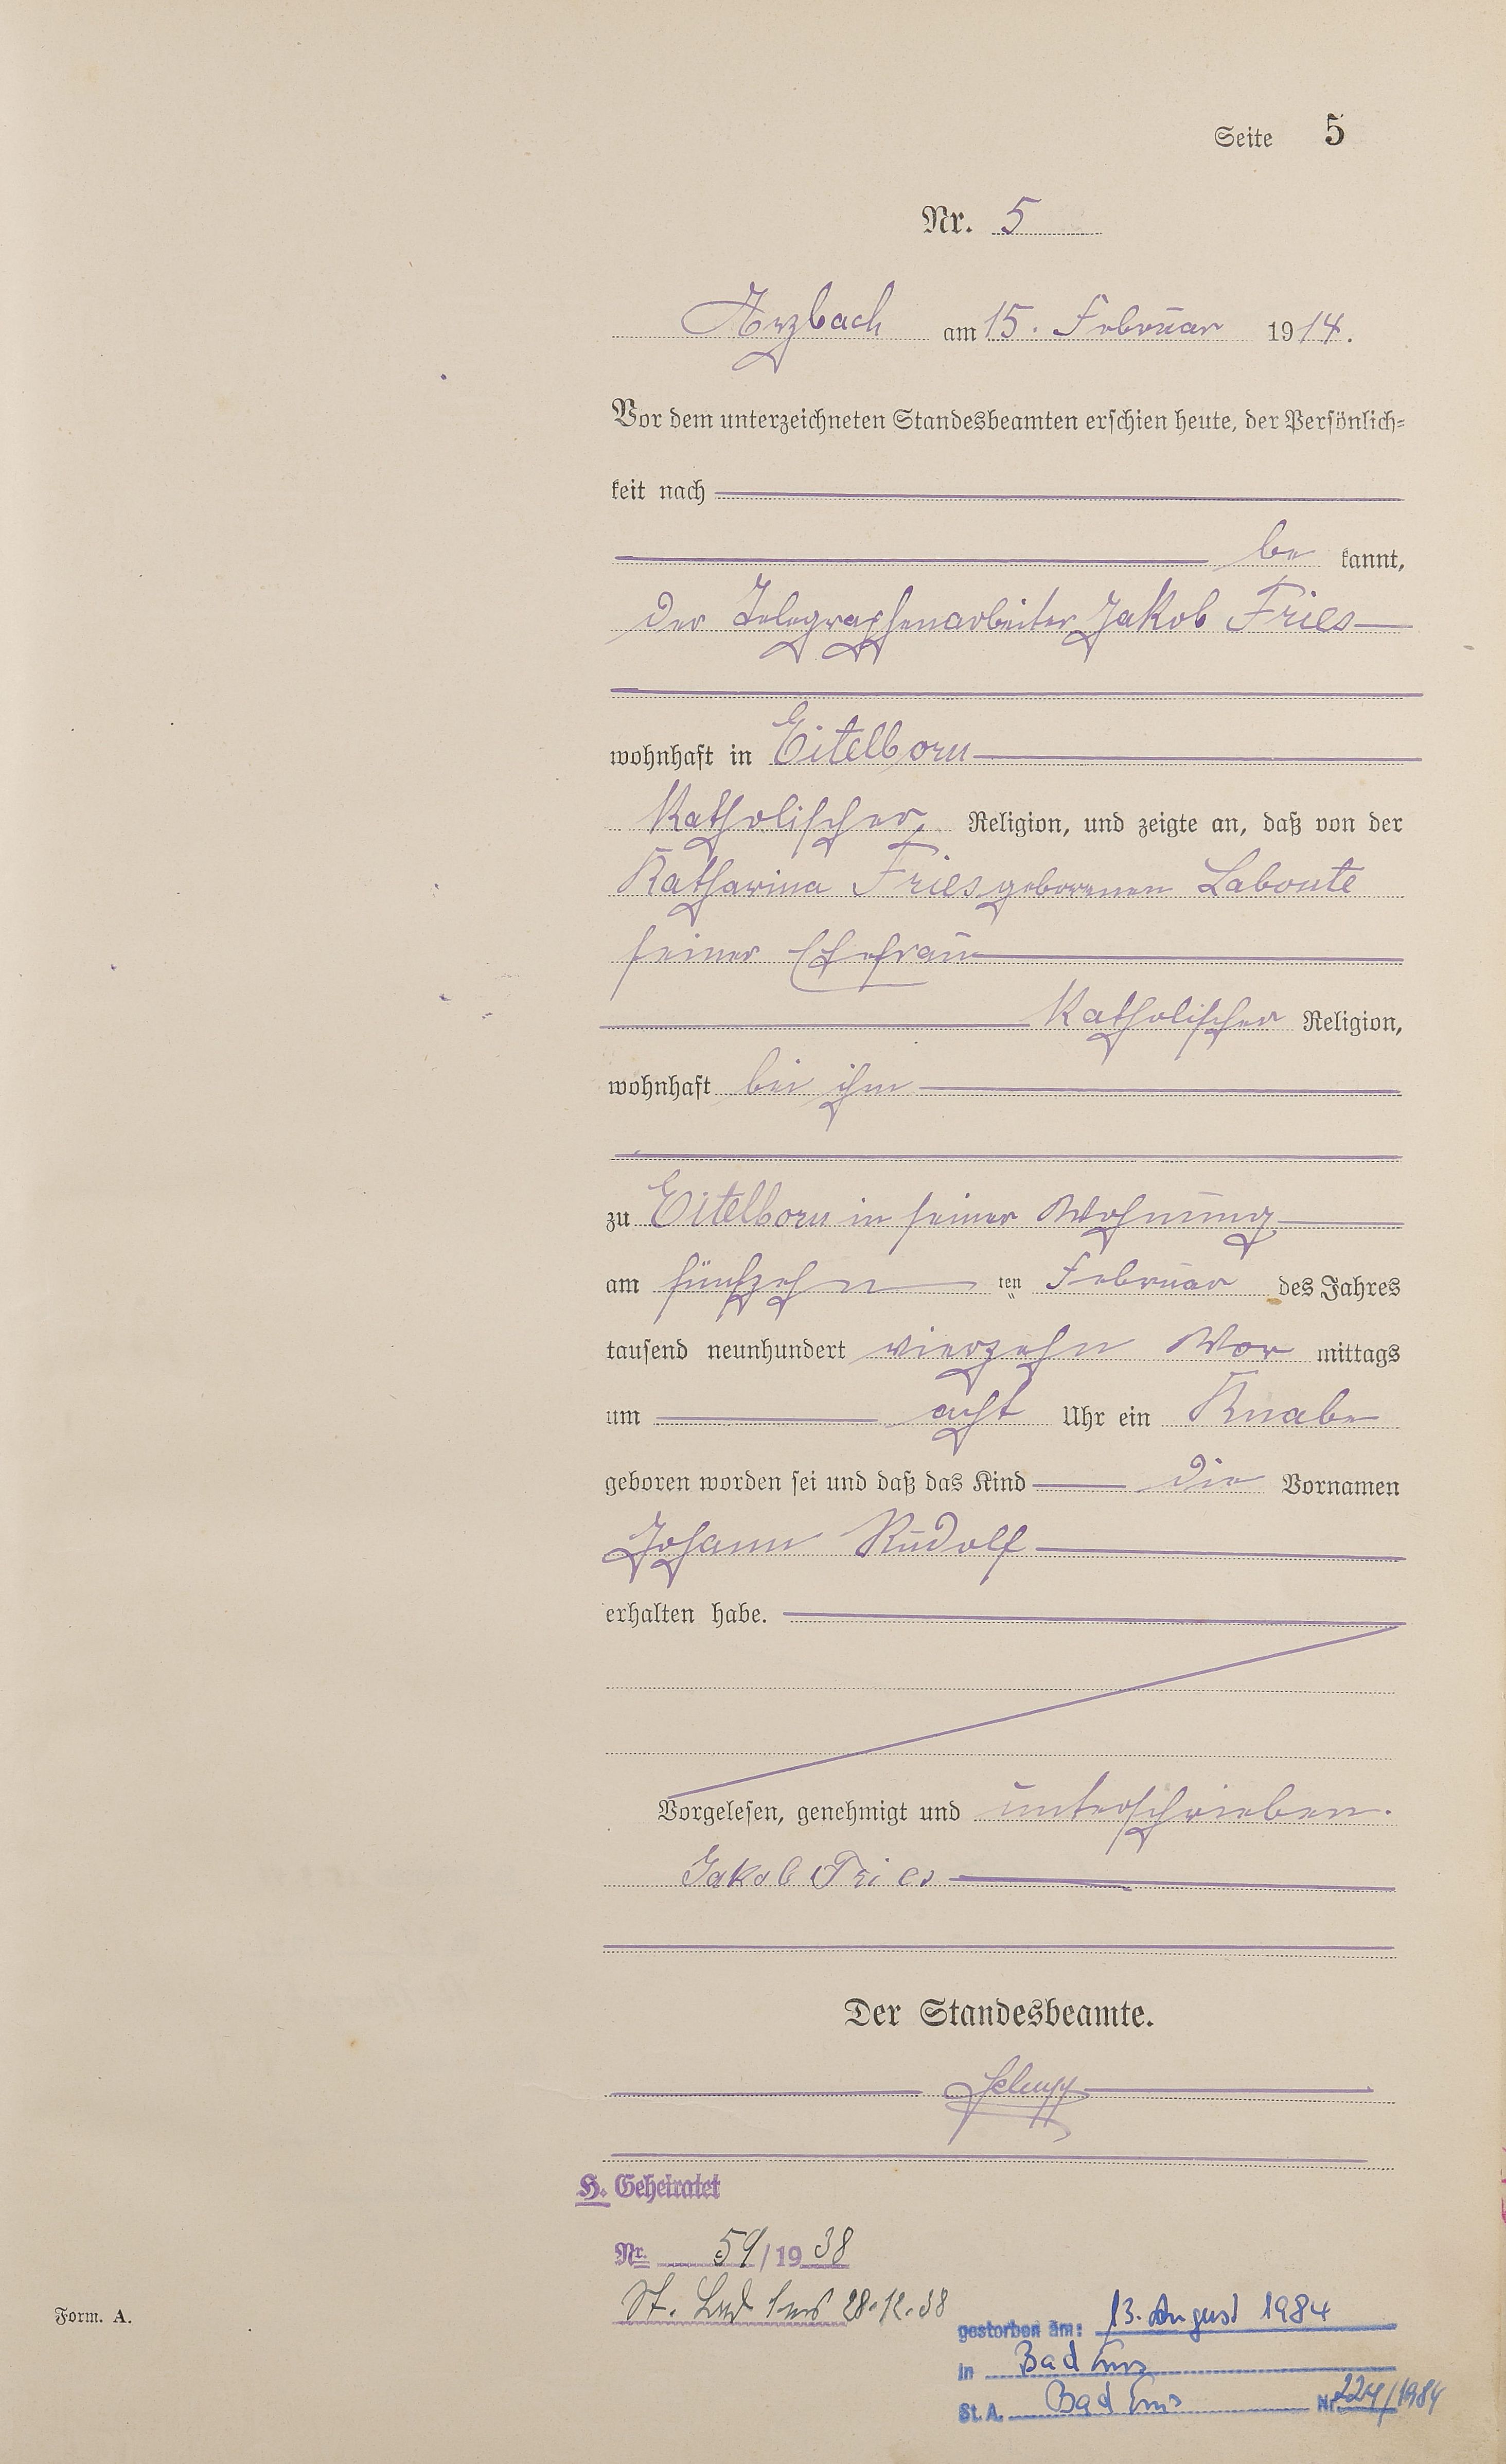 Seite 5
Nr. 5
Arzbach am 15. Februar 1914.
Vor dem unterzeichneten Standesbeamten erschien heute, der Persönlich-
keit nach
be kannt,
der Telegraphenarbeiter Jakob Fries
wohnhaft in Eitelborn
katholischer Religion, und zeigte an, daß von der
Katharina Fries geborenen Labonte
seiner Ehefrau
katholischer Religion,
wohnhaft bei ihm
zu Eitelborn in seiner Wohnung
am fünfzehn ten Februar des Jahres
tausend neunhundert vierzehn Vor mittags
um acht Uhr ein Knabe
geboren worden sei und daß das Kind die Vornamen
Johann Rudolf
erhalten habe.
Vorgelesen, genehmigt und unterschrieben.
Jakob Fries
Der Standesbeamte.
H. Geheiratet
Nr. 59/1938
St. Bad Ems 28.12.38
Form. A.
gestorben am: 13. August 1984
in Bad Ems
St. A. Bad Ems Nr 224/1984